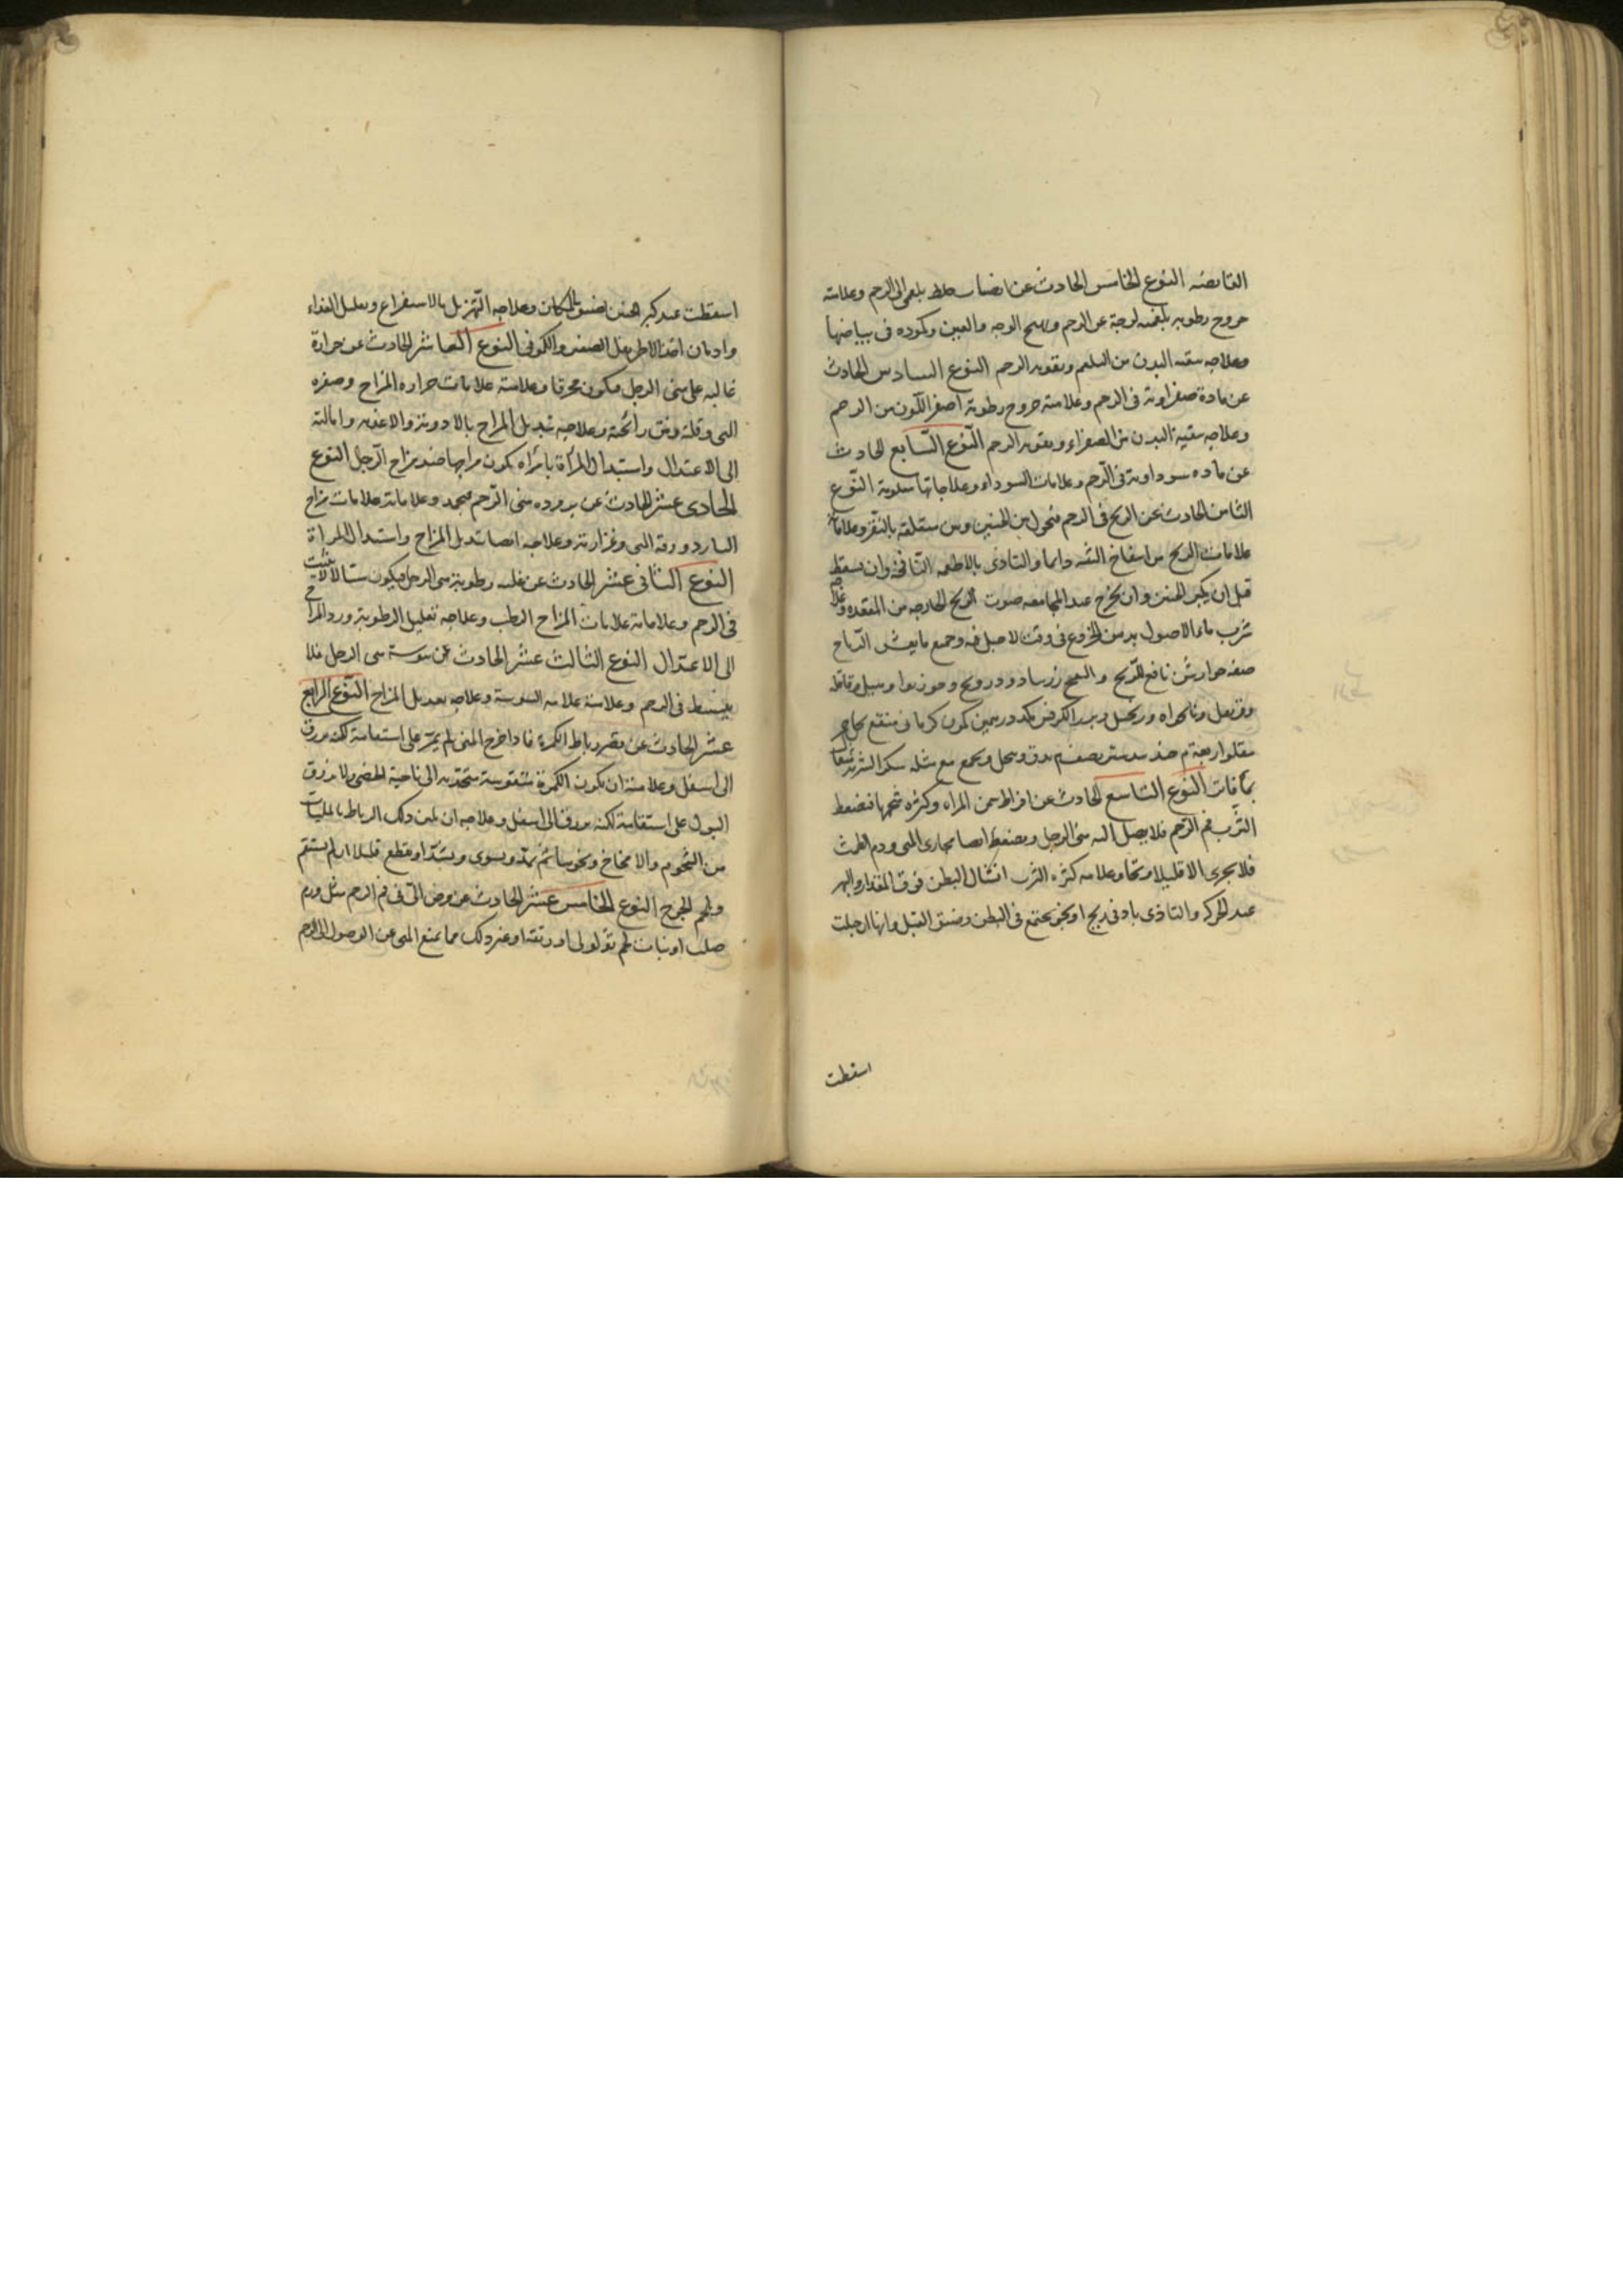 القابضه النوع الخامس الحادث عن انصباب خلط بلغمى الى الرحم وعلامته
خروج رطوبه بلغميه لزجة عن الرحم وتهيج الوجه والعين وكموده فى بياضها
وعلاجه تنقيه البدن من البلغم وتقويه الرحم النوع السادس الحادث
عن مادة صفراوية فى الرحم وعلامته خروج رطوبة اصفر اللون من الرحم
وعلاجه تنقية البدن من الصفراء وتقويه الرحم النوع السابع الحادث
عن ماده سوداوية فى الرحم وعلامات السوداء وعلاجاتها معلومة النوع
الثامن الحادث عن الريح فى الرحم فتحول بين الجنين وبين متعلقه بالنقر وعلاماته
علامات الريح من انتفاخ دايما والتاذى بالاطعمه النافخة وان يسقط
قبل ان يكبر الجنين وان يخرج عند المجامعه صوت الريح الخارجه من المقعده وعلاجه
شرب ماء الاصول بدهن الخروع فى وقت لا حبل فيه وجميع ما يفش الرياح
صفه جوارش نافع للريح والنفخ زرنباد ودرونج وجوزبوا وهيل وقاقله
وقرنفل ونانخواه وزنجبيل وبزر الكرفس مكد درهمين كمون كرمانى منقع بخل خمر
مقلو اربعة م جندبيدستر نصف م يدق وينخل ويجمع مع مثله سكر الشربه مثقال
بماء فاتر النوع التاسع الحادث عن افراط سمن المراه وكثره شحمها فيضغط
الثرب فم الرحم فلا يصل اليه منى الرجل ويضغط ايضا مجارى المنى ودم الطمث
فلا يجرى الا قليلا وعلامه كثره الثرب انتشال البطن فوق المقدار والبهر
عند الحركه والتاذى بادنى ريح او نجو يجتمع فى البطن وضيق القبل وانها ان حبلت
اسقطت
اسقطت عند كبر الجنين لضيق المكان وعلاجه التهزيل بالاستفراغ وتقليل الغذاء
وادمان اخذ الاطريفل الصغير والكمونى النوع العاشر الحادث عن حرارة
غالبه على منى الرجل فيكون محرقا وعلامته علامات حراره المزاج وصفره
المنى وقلته ونتن رائحته وعلاجه تبديل المزاج بالادوية والاغذيه وامالته
الى الاعتدال واستبدال المرأة بامراه يكون مزاجها ضد مزاج الرجل النوع
الحادى عشر الحادث عن بروده منى الرحم فيجمد وعلاماته علامات مزاج
البارد ورقة المنى وغزارته وعلاجه ايضا تبديل المزاج واستبدال المراة
النوع الثانى عشر الحادث عن غلبه رطوبة منى الرجل فيكون سيالا لا يثبت
فى الرحم وعلاماته علامات المزاج الرطب وعلاجه تقليل الرطوبة ورد المزاج
الى الاعتدال النوع الثالث عشر الحادث عن يبوسة منى الرجل فلا
ينبسط فى الرحم وعلامته علامه اليبوسة وعلاجه تعديل المزاج النوع الرابع
عشر الحادث عن قصر رباط الكمرة فاذا خرج المنى لم يمر على استقامة لكنه يزرق
الى اسفل وعلامته ان يكون الكمرة متقوسة منجذبه الى ناحية الخصى ولا يزرق
البول على استقامة لكنه يزرق الى اسفل وعلاجه ان يلين ذلك الرباط بالملينات
من الشحوم والامخاخ ونحوها ثم يمد ويسوى ويشد او يقطع قليلا ان لم يستقم
ويلحم الجرح النوع الخامس عشر الحادث عن مرض الى فى فم الرحم مثل ورم
صلب او نبات لحم ثؤلولى او رتقه او غير ذلك مما يمنع المنى عن الوصول الى الرحم